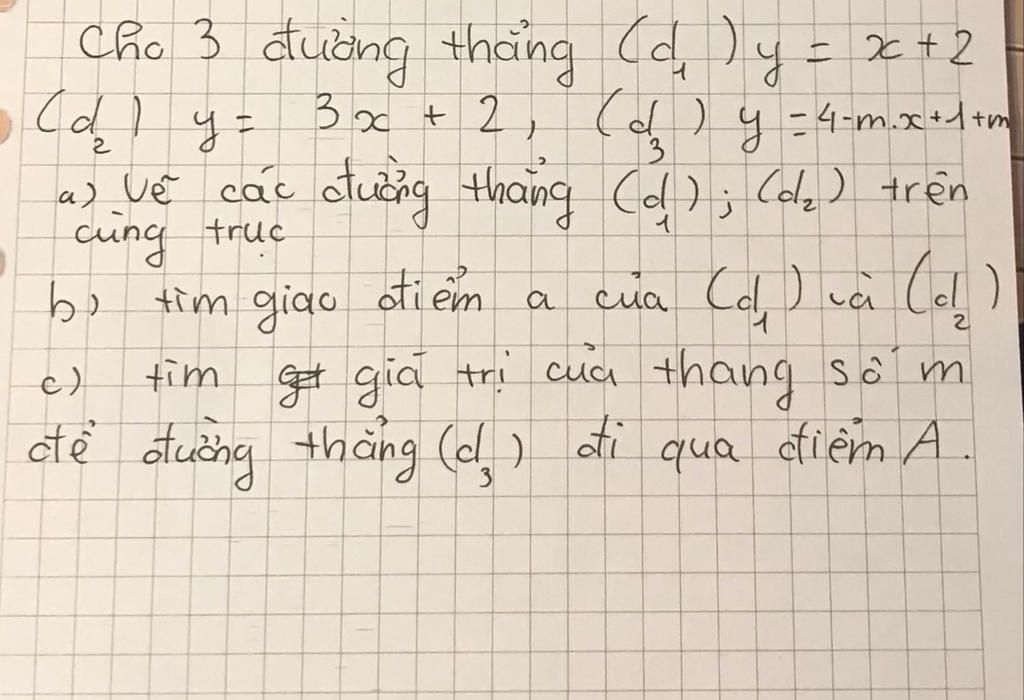 Cho 3 đường thẳng (d₁) y = x + 2
(d₂) y = 3x + 2, (d₃) y = 4-m.x+1+m
a) Vẽ các đường thẳng (d₁); (d₂) trên
cùng trục
b) tìm giao điểm a của (d₁) và (d₂)
c) tìm giá trị của thang số m
để đường thẳng (d₃) đi qua điểm A.